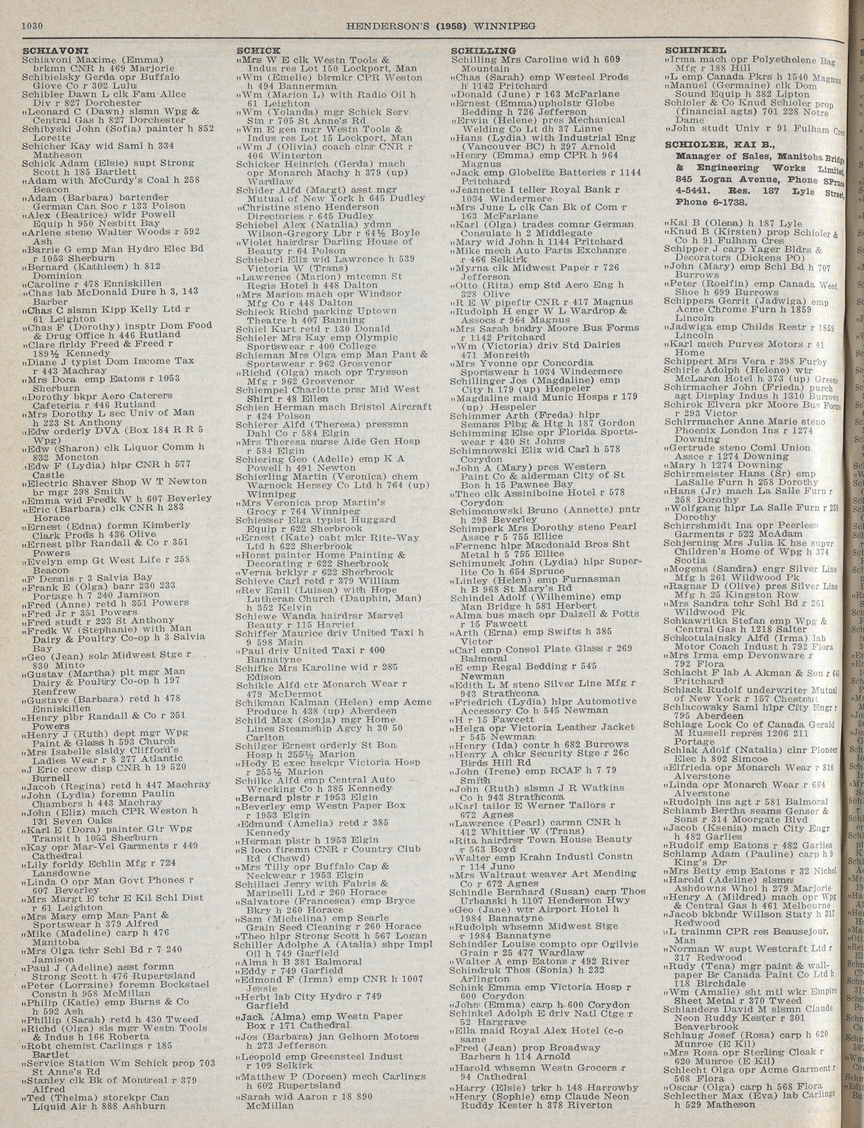 1030
HENDERSON'S (1958) WINNIPEG
SCHIAVONI
Schiavoni Maxime (Emma)
brkmn CNR h 469 Marjorie
Schibielsky Gerda opr Buffalo
Glove Co r 302 Lulu
Schibler Dawn L clk Fam Allce
Div r 827 Dorchester
„Leonard C (Dawn) slsmn Wpg &
Central Gas h 827 Dorchester
Schibyski John (Sofia) painter h 852
Lorette
Schicher Kay wid Saml h 334
Matheson
Schick Adam (Elsie) supt Strong
Scott h 185 Bartlett
„Adam with McCurdy's Coal h 258
Beacon
„Adam (Barbara) bartender
German Can Soc r 133 Polson
„Alex (Beatrice) wldr Powell
Equip h 950 Nesbitt Bay
„Arlene steno Walter Woods r 592
Ash
„Barrie G emp Man Hydro Elec Bd
r 1053 Sherburn
„Bernard (Kathleen) h 812
Dominion
„Caroline r 478 Enniskillen
„Chas lab McDonald Dure h 3, 143
Barber
„Chas C slsmn Kipp Kelly Ltd r
61 Leighton
„Chas F (Dorothy) insptr Dom Food
& Drug Office h 446 Rutland
„Clare firldy Freed & Freed r
189½ Kennedy
„Diane J typist Dom Income Tax
r 443 Machray
„Mrs Dora emp Eatons r 1053
Sherburn
„Dorothy bkpr Aero Caterers
Cafeteria r 446 Rutland
„Mrs Dorothy L sec Univ of Man
h 223 St Anthony
„Edw orderly DVA (Box 184 R R 5
Wpg)
„Edw (Sharon) clk Liquor Comm h
832 Moncton
„Edw F (Lydia) hlpr CNR h 577
Castle
„Electric Shaver Shop W T Newton
br mgr 298 Smith
„Emma wid Fredk W h 607 Beverley
„Eric (Barbara) clk CNR h 283
Horace
„Ernest (Edna) formn Kimberly
Clark Prods h 436 Olive
„Ernest plbr Randall & Co r 351
Powers
„Evelyn emp Gt West Life r 258
Beacon
„F Dennis r 3 Salvia Bay
„Frank E (Olga) barr 230 233
Portage h 7 240 Jamison
„Fred (Anne) retd h 351 Powers
„Fred Jr r 351 Powers
„Fred studt r 223 St Anthony
„Fredk W (Stephanie) with Man
Dairy & Poultry Co-op h 3 Salvia
Bay
„Geo (Jean) solr Midwest Stge r
830 Minto
„Gustav (Martha) plt mgr Man
Dairy & Poultry Co-op h 197
Renfrew
„Gustave (Barbara) retd h 478
Enniskillen
„Henry plbr Randall & Co r 351
Powers
„Henry J (Ruth) dept mgr Wpg
Paint & Glass h 593 Church
„Mrs Isabelle slsldy Clifford's
Ladies Wear r 8 277 Atlantic
„J Eric crew disp CNR h 19 520
Burnell
„Jacob (Regina) retd h 447 Machray
„John (Lydia) foremn Paulin
Chambers h 443 Machray
„John (Eliz) mach CPR Weston h
131 Seven Oaks
„Karl E (Dora) painter Gtr Wpg
Transit h 1053 Sherburn
„Kay opr Mar-Vel Garments r 449
Cathedral
„Lily forldy Echlin Mfg r 724
Lansdowne
„Linda O opr Man Govt Phones r
607 Beverley
„Mrs Margt E tchr E Kil Schl Dist
r 61 Leighton
„Mrs Mary emp Man Pant &
Sportswear h 379 Alfred
„Mike (Madeline) carp h 476
Manitoba
„Mrs Olga tchr Schl Bd r 7 240
Jamison
„Paul J (Adeline) asst formn
Strong Scott h 476 Rupertsland
„Peter (Lorraine) foremn Bockstael
Constn h 958 McMillan
„Philip (Katie) emp Burns & Co
h 592 Ash
„Phillip (Sarah) retd h 430 Tweed
„Richd (Olga) sls mgr Westn Tools
& Indus h 166 Roberta
„Robt chemist Carlings r 185
Bartlet
„Service Station Wm Schick prop 703
St Anne's Rd
„Stanley clk Bk of Montreal r 379
Alfred
„Ted (Thelma) storekpr Can
Liquid Air h 888 Ashburn
SCHICK
„Mrs W E clk Westn Tools &
Indus res Lot 150 Lockport, Man
„Wm (Emelie) blrmkr CPR Weston
h 494 Bannerman
„Wm (Marion L) with Radio Oil h
61 Leighton
„Wm (Yolanda) mgr Schick Serv
Stn r 705 St Anne's Rd
„Wm E gen mgr Westn Tools &
Indus res Lot 15 Lockport, Man
„Wm J (Olivia) coach clnr CNR r
406 Winterton
Schicker Heinrich (Gerda) mach
opr Monarch Machy h 379 (up)
Wardlaw
Schider Alfd (Margt) asst mgr
Mutual of New York h 645 Dudley
„Christine steno Henderson
Directories r 645 Dudley
Schiebel Alex (Natalia) ydmn
Wilson-Gregory Lbr r 64½ Boyle
„Violet hairdrsr Darling House of
Beauty r 64 Polson
Schieberl Eliz wid Lawrence h 539
Victoria W (Trans)
„Lawrence (Marion) mtcemn St
Regis Hotel h 448 Dalton
„Mrs Marion mach opr Windsor
Mfg Co r 448 Dalton
Schieck Richd parking Uptown
Theatre h 407 Banning
Schiel Kurt retd r 130 Donald
Schieler Mrs Kay emp Olympic
Sportswear r 400 College
Schieman Mrs Olga emp Man Pant &
Sportswear r 962 Grosvenor
„Richd (Olga) mach opr Trysson
Mfg r 962 Grosvenor
Schiempel Charlotte prsr Mid West
Shirt r 48 Ellen
Schien Herman mach Bristol Aircraft
r 424 Polson
Schierer Alfd (Theresa) pressmn
Dahl Co r 584 Elgin
„Mrs Theresa nurse Aide Gen Hosp
r 584 Elgin
Schiering Geo (Adelle) emp K A
Powell h 491 Newton
Schierling Martin (Veronica) chem
Warnock Hersey Co Ltd h 764 (up)
Winnipeg
„Mrs Veronica prop Martin's
Grocy r 764 Winnipeg
Schiesser Elga typist Huggard
Equip r 622 Sherbrook
„Ernest (Kate) cabt mkr Rite-Way
Ltd h 622 Sherbrook
„Horst painter Home Painting &
Decorating r 622 Sherbrook
„Verna brklyr r 622 Sherbrook
Schieve Carl retd r 379 William
„Rev Emil (Luisea) with Hope
Lutheran Church (Dauphin, Man)
h 352 Kelvin
Schiewe Wanda hairdrsr Marvel
Beauty r 115 Harriet
Schiffer Maurice driv United Taxi h
9 598 Main
„Paul driv United Taxi r 400
Bannatyne
Schifke Mrs Karoline wid r 285
Edison
Schikle Alfd ctr Monarch Wear r
479 McDermot
Schikman Kalman (Helen) emp Acme
Produce h 438 (up) Aberdeen
Schild Max (Sonja) mgr Home
Lines Steamship Agcy h 30 50
Carlton
Schilger Ernest orderly St Bon
Hosp h 255½ Marion
„Hedy E exec hsekpr Victoria Hosp
r 255½ Marion
Schilke Alfd emp Central Auto
Wrecking Co h 385 Kennedy
„Bernard plstr r 1953 Elgin
„Beverley emp Westn Paper Box
r 1953 Elgin
„Edmund (Amelia) retd r 385
Kennedy
„Herman plstr h 1953 Elgin
„S loco firemn CNR r Country Club
Rd (Chswd)
„Mrs Tilly opr Buffalo Cap &
Neckwear r 1953 Elgin
Schillaci Jerry with Fabris &
Marinelli Ltd r 260 Horace
„Salvatore (Francesca) emp Bryce
Bkry h 260 Horace
„Sam (Michelina) emp Searle
Grain Seed Cleaning r 260 Horace
„Theo hlpr Strong Scott h 567 Logan
Schiller Adolphe A (Atalia) shpr Impl
Oil h 749 Garfield
„Alma h B 381 Balmoral
„Eddy r 749 Garfield
„Edmond F (Irma) emp CNR h 1007
Jessie
„Herbt lab City Hydro r 749
Garfield
„Jack (Alma) emp Westn Paper
Box r 171 Cathedral
„Jos (Barbara) jan Gelhorn Motors
h 273 Jefferson
„Leopold emp Greensteel Indust
r 109 Selkirk
„Matthew P (Doreen) mech Carlings
h 602 Rupertsland
„Sarah wid Aaron r 18 890
McMillan
SCHILLING
Schilling Mrs Caroline wid h 609
Mountain
„Chas (Sarah) emp Westeel Prods
h 1142 Pritchard
„Donald (June) r 163 McFarlane
„Ernest (Emma) upholstr Globe
Bedding h 726 Jefferson
„Erwin (Helen) pres Mechanical
Welding Co Lt dh 37 Linne
„Hans (Lydia) with Industrial Eng
(Vancouver BC) h 297 Arnold
„Henry (Emma) emp CPR h 964
Magnus
„Jack emp Globelite Batteries r 1144
Pritchard
„Jeannette I teller Royal Bank r
1034 Windermere
„Mrs June L clk Can Bk of Com r
163 McFarlane
„Karl (Olga) trades comnr German
Consulate h 2 Middlegate
„Mary wid John h 1144 Pritchard
„Mike mech Auto Parts Exchange
r 466 Selkirk
„Myrna clk Midwest Paper r 726
Jefferson
„Otto (Rita) emp Std Aero Eng h
328 Olive
„R E W pipeftr CNR r 417 Magnus
„Rudolph H engr W L Wardrop &
Assocs r 964 Magnus
„Mrs Sarah bndry Moore Bus Forms
r 1142 Pritchard
„Wm (Victoria) driv Std Dairies
471 Monreith
„Mrs Yvonne opr Concordia
Sportswear h 1034 Windermere
Schillinger Jos (Magdaline) emp
City h 179 (up) Hespeler
„Magdaline maid Munic Hosps r 179
(up) Hespeler
Schimmer Arth (Freda) hlpr
Semans Plbg & Htg h 187 Gordon
Schimming Else opr Florida Sports-
wear r 430 St Johns
Schimnowski Eliz wid Carl h 578
Corydon
„John A (Mary) pres Western
Paint Co & alderman City of St
Bon h 15 Pawnee Bay
„Theo clk Assiniboine Hotel r 578
Corydon
Schimonowski Bruno (Annette) pntr
h 298 Beverley
Schimperk Mrs Dorothy steno Pearl
Assce r 5 755 Ellice
„Fernenc hlpr Macdonald Bros Sht
Metal h 5 755 Ellice
Schimunek John (Lydia) hlpr Super-
lite Co h 654 Spruce
„Linley (Helen) emp Furnasman
h B 968 St Mary's Rd
Schindel Adolf (Wilhemine) emp
Man Bridge h 581 Herbert
„Alma bus mach opr Dalzell & Potts
r 15 Fawcett
„Arth (Erna) emp Swifts h 385
Victor
„Carl emp Consol Plate Glass r 269
Balmoral
„E emp Regal Bedding r 545
Newman
„Edith L M steno Silver Line Mfg r
943 Strathcona
„Friedrich (Lydia) hlpr Automotive
Accessory Co h 545 Newman
„H r 15 Fawcett
„Helga opr Victoria Leather Jacket
r 545 Newman
„Henry (Ida) contr h 682 Burrows
„Henry A chkr Security Stge r 26c
Birds Hill Rd
„John (Irene) emp RCAF h 7 79
Smith
„John (Ruth) slsmn J R Watkins
Co h 943 Strathcona
„Karl tailer E Werner Tailors r
672 Agnes
„Lawrence (Pearl) carmn CNR h
412 Whittier W (Trans)
„Rita hairdrsr Town House Beauty
r 563 Boyd
„Walter emp Krahn Industl Constn
r 114 Juno
„Mrs Waltraut weaver Art Mending
Co r 672 Agnes
Schindle Bernhard (Susan) carp Thos
Urbanski h 1107 Henderson Hwy
„Geo (Jane) wtr Airport Hotel h
1984 Bannatyne
„Rudolph whsemn Midwest Stge
r 1984 Bannatyne
Schindler Louise compto opr Ogilvie
Grain r 25 477 Wardlaw
„Walter A emp Eatons r 492 River
Schindruk Thos (Sonia) h 232
Arlington
Schink Emma emp Victoria Hosp r
600 Corydon
„John (Emma) carp h 600 Corydon
Schinkel Adolph E driv Natl Ctge r
52 Hargrave
„Ella maid Royal Alex Hotel (c-o
same
„Fred (Jean) prop Broadway
Barbers h 114 Arnold
„Harold whsemn Westn Grocers r
94 Cathedral
„Harry (Elsie) trkr h 148 Harrowby
„Henry (Sophie) emp Claude Neon
Ruddy Kester h 378 Riverton
SCHINKEL
„Irma mach opr Polyethelene Bag
Mfg r 188 Hill
„L emp Canada Pkrs h 1540 Magnus
„Manuel (Germaine) clk Dom
Sound Equip h 382 Lipton
Schioler & Co Knud Schioler prop
(financial agts) 701 228 Notre
Dame
„John studt Univ r 91 Fulham Cres
SCHIOLER, KAI B.,
Manager of Sales, Manitoba Bridge
& Engineering Works Limited,
845 Logan Avenue, Phone SPruce
4-5441. Res. 187 Lyle Street,
Phone 6-1738.
„Kai B (Olena) h 187 Lyle
„Knud B (Kirsten) prop Schioler &
Co h 91 Fulham Cres
Schipper J carp Yager Bldrs &
Decorators (Dickens PO)
„John (Mary) emp Schl Bd h 707
Burrows
„Peter (Roelfin) emp Canada West
Shoe h 699 Burrows
Schippers Gerrit (Jadwiga) emp
Acme Chrome Furn h 1859
Lincoln
„Jadwiga emp Childs Restr r 1859
Lincoln
„Karl mech Purves Motors r 41
Home
Schippert Mrs Vera r 398 Furby
Schirle Adolph (Helene) wtr
McLaren Hotel h 373 (up) Greene
Schirmacher John (Frieda) purch
agt Display Indus h 1310 Burrows
Schirok Elvera pkr Moore Bus Forms
r 293 Victor
Schirrmacher Anne Marie steno
Phoenix London Ins r 1274
Downing
„Gertrude steno Coml Union
Assce r 1274 Downing
„Mary h 1274 Downing
Schirrmeister Hans (Sr) emp
LaSalle Furn h 258 Dorothy
„Hans (Jr) mach La Salle Furn r
258 Dorothy
„Wolfgang hlpr La Salle Furn r 258
Dorothy
Schirrshmidt Ina opr Peerless
Garments r 522 McAdam
Schjerning Mrs Julia K hse supvr
Children's Home of Wpg h 374
Scotia
„Mogens (Sandra) engr Silver Line
Mfg h 261 Wildwood Pk
„Ragnar D (Olive) pres Silver Line
Mfg h 25 Kingston Row
„Mrs Sandra tchr Schl Bd r 261
Wildwood Pk
Schkawritka Stefan emp Wpg &
Central Gas h 1218 Selter
Schkotulainsky Alfd (Irma) lab
Motor Coach Indust h 792 Flora
„Mrs Irma emp Devonware r
792 Flora
Schlacht F lab A Akman & Son r 46
Pritchard
Schlack Rudolf underwriter Mutual
of New York r 157 Chestnut
Schlacowsky Saml hlpr City Engr r
795 Aberdeen
Schlage Lock Co of Canada Gerald
M Russell repres 1206 211
Portage
Schlak Adolf (Natalia) clnr Pioneer
Elec h 802 Simcoe
„Elfrieda opr Monarch Wear r 816
Alverstone
„Linda opr Monarch Wear r 664
Alverstone
„Rudolph ins agt r 581 Balmoral
Schlamb Bertha seams Genser &
Sons r 314 Moorgate Blvd
„Jacob (Ksenia) mach City Engr
h 482 Garlies
„Rudolf emp Eatons r 482 Garlies
Schlamp Adam (Pauline) carp h 9
King's Dr
„Mrs Betty emp Eatons r 32 Nichol
„Harold (Adeline) slsmn
Ashdowns Whol h 279 Marjorie
„Henry A (Mildred) mach opr Wpg
& Central Gas h 461 Melbourne
„Jacob bkbndr Willson Staty h 317
Redwood
„L trainmn CPR res Beausejour,
Man
„Norman W supt Westcraft Ltd r
317 Redwood
„Rudy (Tena) mgr paint & wall-
paper Br Canada Paint Co Ltd h
118 Birchdale
„Wm (Amalie) sht mtl wkr Empire
Sheet Metal r 370 Tweed
Schlanders David M slsmn Claude
Neon Ruddy Kester r 301
Beaverbrook
Schlaug Josef (Rosa) carp h 620
Munroe (E Kil)
„Mrs Rosa opr Sterling Cloak r
620 Munroe (E Kil)
Schlecht Olga opr Acme Garment r
568 Flora
„Oscar (Olga) carp h 568 Flora
Schlecther Max (Eva) lab Carlings
h 529 Matheson